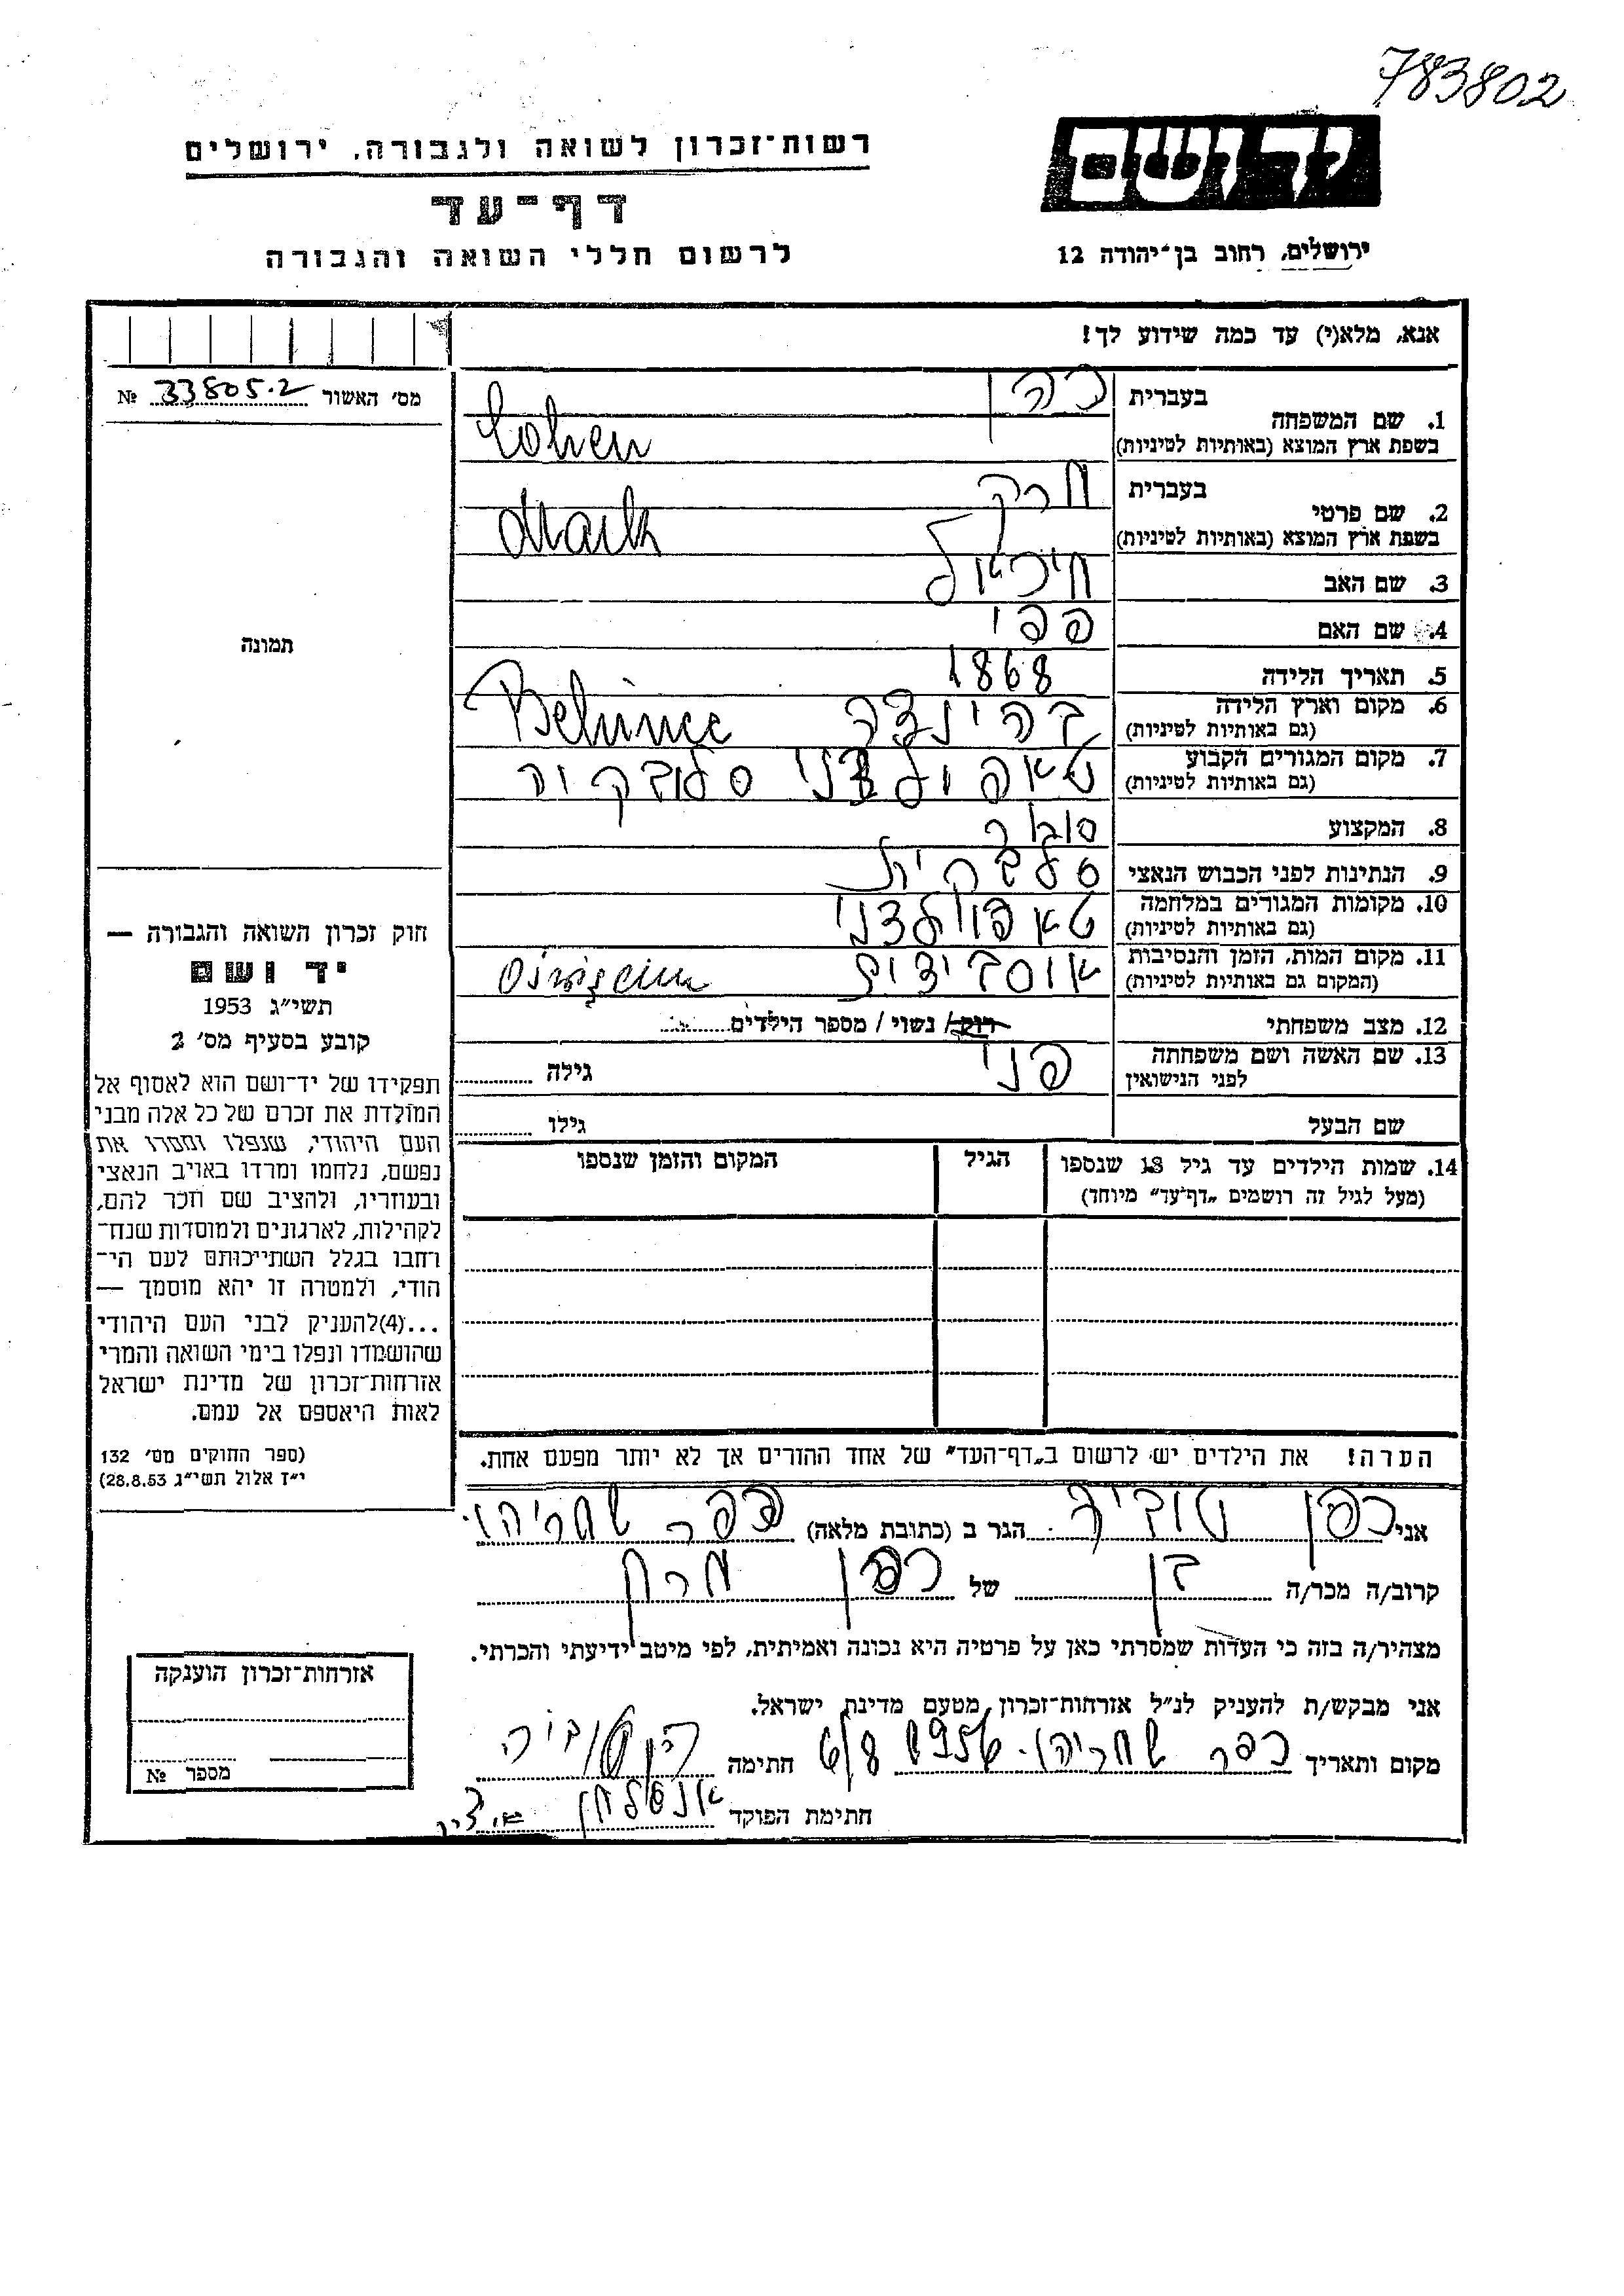 783802
יד ושם
רשות־זכרון לשואה ולגבורה, ירושלים
דף־עד
לרשום חללי השואה והגבורה
ירושלים, רחוב בן־יהודה 12
אנא, מלא(י) עד כמה שידוע לך!
מס׳ האשור 33805.2 №
1. שם המשפחה בעברית כהן
בשפת ארץ המוצא (באותיות לטיניות) Cohen
2. שם פרטי בעברית מרק
בשפת ארץ המוצא (באותיות לטיניות) Mark
3. שם האב מיכאל
4. שם האם פפי
5. תאריך הלידה 1868
6. מקום וארץ הלידה
(גם באותיות לטיניות)
7. מקום המגורים הקבוע טאפולצני סלובקיה
(גם באותיות לטיניות)
8. המקצוע סוחר
9. הנתינות לפני הכבוש הנאצי
10. מקומות המגורים במלחמה טאפולצני
(גם באותיות לטיניות)
11. מקום המות, הזמן והנסיבות
(המקום גם באותיות לטיניות)
12. מצב משפחתי רוק / נשוי / מספר הילדים
13. שם האשה ושם משפחתה פני גילה
לפני הנישואין
שם הבעל גילו
14. שמות הילדים עד גיל 18 שנספו הגיל המקום והזמן שנספו
(מעל לגיל זה רושמים „דף־עד״ מיוחד)
תמונה
חוק זכרון השואה והגבורה —
יד ושם
תשי״ג 1953
קובע בסעיף מס׳ 2
תפקידו של יד־ושם הוא לאסוף אל
המולדת את זכרם של כל אלה מבני
העם היהודי, שנפלו ומסרו את
נפשם, נלחמו ומרדו באויב הנאצי
ובעוזריו, ולהציב שם וזכר להם,
לקהילות, לארגונים ולמוסדות שנח־
רחבו בגלל השתייכותם לעם הי־
הודי, ולמטרה זו יהא מוסמך —
...(4)להעניק לבני העם היהודי
שהושמדו ונפלו בימי השואה והמרי
אזרחות־זכרון של מדינת ישראל
לאות היאספם אל עמם.
(ספר החוקים מס׳ 132
י״ז אלול תשי״ג 28.8.53)
הערה! את הילדים יש לרשום ב„דף־העד״ של אחד ההורים אך לא יותר מפעם אחת.
אני כהן הגר ב (כתובת מלאה) כפר שמריהו
קרוב/ה מכר/ה בן של כהן
מצהיר/ה בזה כי העדות שמסרתי כאן על פרטיה היא נכונה ואמיתית, לפי מיטב ידיעתי והכרתי.
אני מבקש/ת להעניק לנ״ל אזרחות־זכרון מטעם מדינת ישראל.
מקום ותאריך כפר שמריהו חתימה
חתימת הפוקד
אזרחות־זכרון הוענקה
מספר №